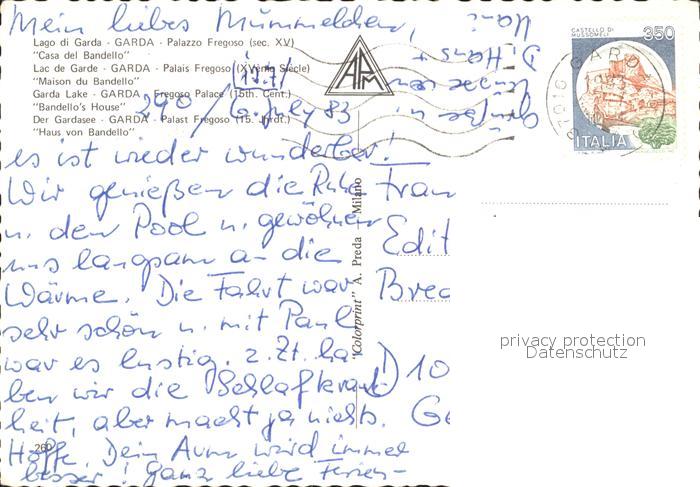 Mein liebes Mümmelchen,
Lago di Garda - GARDA - Palazzo Fregoso (sec. XV)
"Casa del Bandello"
Lac de Garde - GARDA - Palais Fregoso (XVème Siècle)
"Maison du Bandello"
Garda Lake - GARDA - Fregoso Palace (15th. Cent.)
"Bandello's House"
Der Gardasee - GARDA - Palast Fregoso (15. Jhrdt.)
"Haus von Bandello"
290 / 6. July 83
es ist wieder wunderbar!
Wir genießen die Ruhe
u. den Pool u. gewöhnen
uns langsam an die
Wärme. Die Fahrt war
sehr schön u. mit Paul
war es lustig. z.Zt. ha-
ben wir die Schlafkrank-
heit, aber macht ja nichts.
Hoffe, Dein Arm wird immer
besser! Ganz liebe Ferien-
260
APM
"Colorprint" A. Preda - Milano
CASTELLO DI
MUSSOMELI
350
ITALIA
GARDA
37016
Frau
Edit
Brec
D 10
Ge
privacy protection
Datenschutz